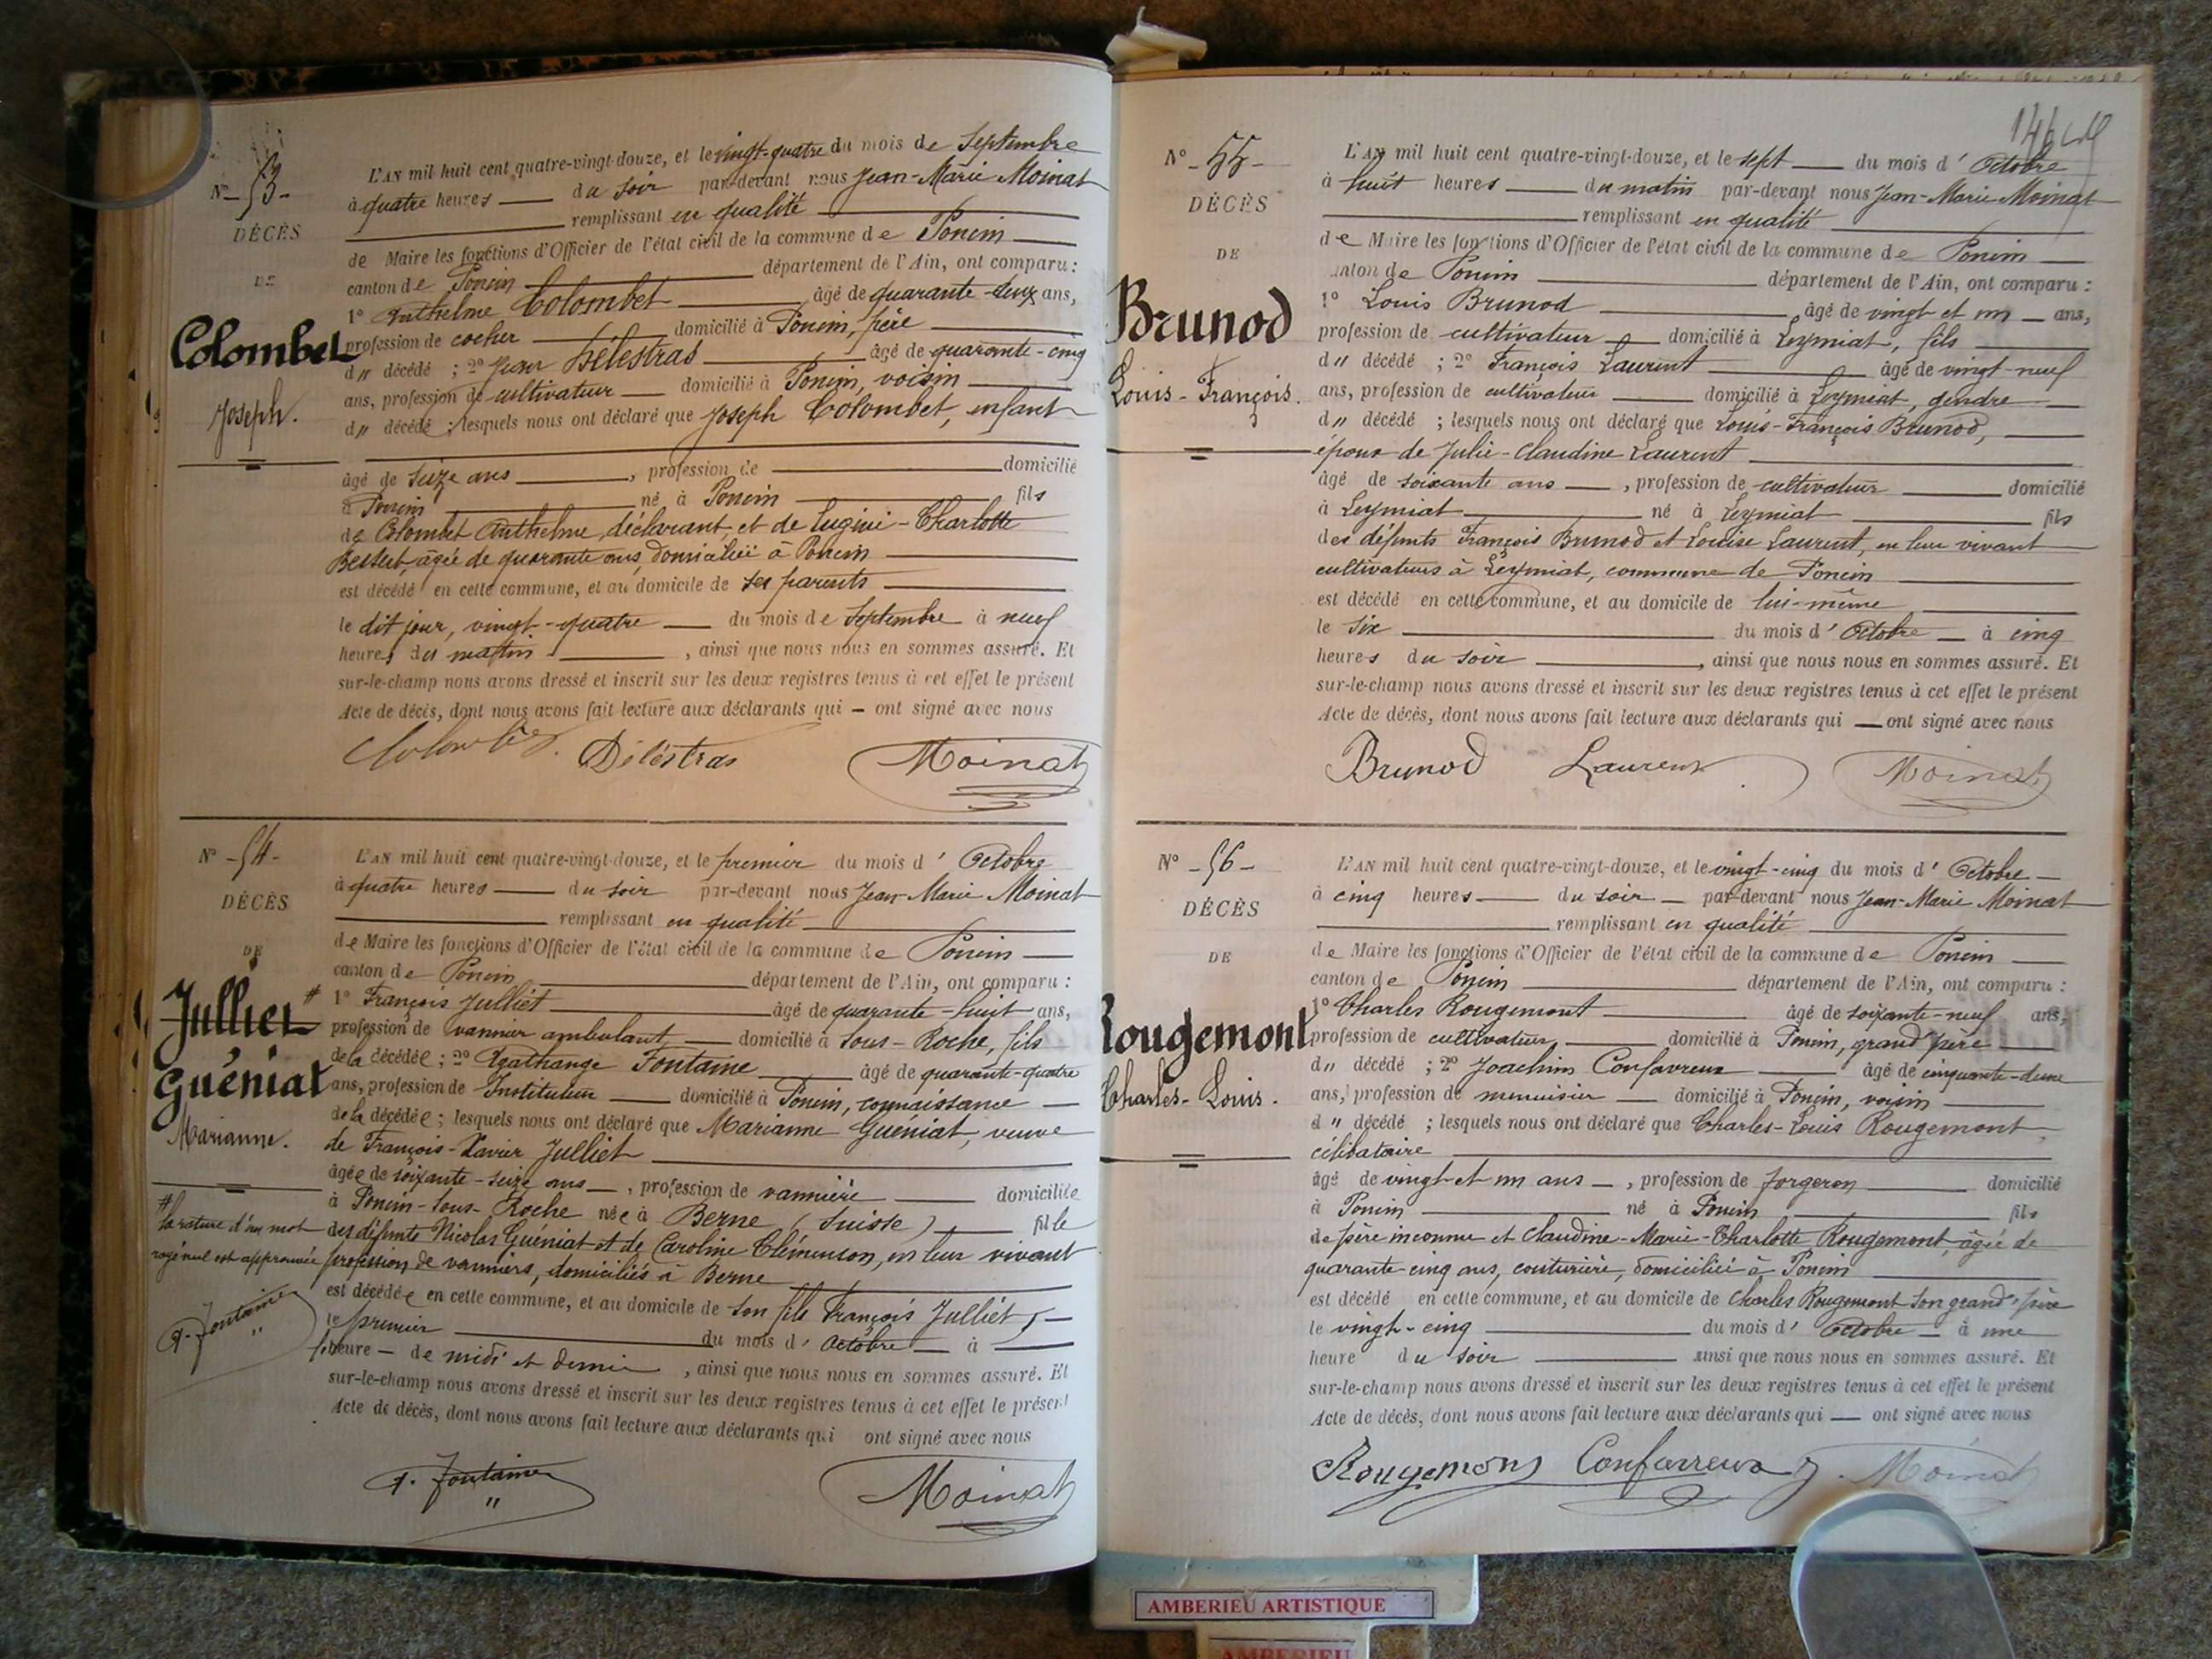 N° -53-
DÉCÈS
DE
Colombet
Joseph.
L'AN mil huit cent quatre-vingt-douze, et le vingt-quatre du mois de Septembre
à quatre heures du soir par-devant nous Jean-Marie Moinat
remplissant en qualité
de Maire les fonctions d'Officier de l'état civil de la commune de Poncin
canton de Poncin département de l'Ain, ont comparu :
1° Anthelme Colombet âgé de quarante-deux ans,
profession de cocher domicilié à Poncin, père
d" décédé ; 2° Jean Délestras âgé de quarante-cinq
ans, profession de cultivateur domicilié à Poncin, voisin
d" décédé ; lesquels nous ont déclaré que Joseph Colombet, enfant
âgé de seize ans, profession de domicilié
à Poncin né à Poncin fils
de Colombet Anthelme, déclarant, et de Eugénie-Charlotte
âgée de quarante ans, domiciliée à Poncin
est décédé en cette commune, et au domicile de ses parents
le dit jour, vingt-quatre du mois de Septembre à neuf
heures du matin, ainsi que nous nous en sommes assuré. Et
sur-le-champ nous avons dressé et inscrit sur les deux registres tenus à cet effet le présent
Acte de décès, dont nous avons fait lecture aux déclarants qui — ont signé avec nous
Délestras Moinat
N° -54-
DÉCÈS
DE
Julliet
Guéniat
Marianne.
L'AN mil huit cent quatre-vingt-douze, et le premier du mois d' Octobre
à quatre heures du soir par-devant nous Jean-Marie Moinat
remplissant en qualité
de Maire les fonctions d'Officier de l'état civil de la commune de Poncin
canton de Poncin département de l'Ain, ont comparu :
# 1° François Julliet âgé de quarante-huit ans,
profession de vannier ambulant domicilié à Sous-Roche, fils
de la décédée ; 2° Agathange Fontaine âgé de quarante-quatre
ans, profession de Instituteur domicilié à Poncin, connaissance
de la décédée ; lesquels nous ont déclaré que Marianne Guéniat, veuve
de François-Xavier Julliet
âgée de soixante-seize ans, profession de vannière domiciliée
à Poncin-Sous-Roche née à Berne (Suisse), fille
des défunts Nicolas Guéniat et de Caroline Clémençon, en leur vivant
profession de vanniers, domiciliés à Berne
est décédée en cette commune, et au domicile de son fils François Julliet,
le premier du mois d' Octobre à
heure de midi et demie, ainsi que nous nous en sommes assuré. Et
sur-le-champ nous avons dressé et inscrit sur les deux registres tenus à cet effet le présent
Acte de décès, dont nous avons fait lecture aux déclarants qui ont signé avec nous
# la rature d'un mot
rayé nul est approuvée
A. Fontaine
A. Fontaine Moinat
N° -55-
DÉCÈS
DE
Brunod
Louis-François.
L'AN mil huit cent quatre-vingt-douze, et le sept du mois d' Octobre
à huit heures du matin par-devant nous Jean-Marie Moinat
remplissant en qualité
de Maire les fonctions d'Officier de l'état civil de la commune de Poncin
canton de Poncin département de l'Ain, ont comparu :
1° Louis Brunod âgé de vingt et un ans,
profession de cultivateur domicilié à Leymiat, fils
d" décédé ; 2° François Laurent âgé de vingt-neuf
ans, profession de cultivateur domicilié à Leymiat, gendre
d" décédé ; lesquels nous ont déclaré que Louis-François Brunod,
époux de Julie-Claudine Laurent
âgé de soixante ans, profession de cultivateur domicilié
à Leymiat né à Leymiat fils
des défunts François Brunod et Louise Laurent, en leur vivant
cultivateurs à Leymiat, commune de Poncin
est décédé en cette commune, et au domicile de lui-même
le six du mois d' Octobre à cinq
heures du soir, ainsi que nous nous en sommes assuré. Et
sur-le-champ nous avons dressé et inscrit sur les deux registres tenus à cet effet le présent
Acte de décès, dont nous avons fait lecture aux déclarants qui — ont signé avec nous
Brunod Laurent Moinat
N° -56-
DÉCÈS
DE
Rougemont
Charles-Louis.
L'AN mil huit cent quatre-vingt-douze, et le vingt-cinq du mois d' Octobre
à cinq heures du soir par-devant nous Jean-Marie Moinat
remplissant en qualité
de Maire les fonctions d'Officier de l'état civil de la commune de Poncin
canton de Poncin département de l'Ain, ont comparu :
1° Charles Rougemont âgé de soixante-neuf ans,
profession de cultivateur, domicilié à Poncin, grand'père
d" décédé ; 2° Joachim Confavreux âgé de cinquante-deux
ans, profession de menuisier domicilié à Poncin, voisin
d" décédé ; lesquels nous ont déclaré que Charles-Louis Rougemont,
célibataire
âgé de vingt et un ans, profession de forgeron domicilié
à Poncin né à Poncin fils
de père inconnu et Claudine-Marie-Charlotte Rougemont, âgée de
quarante-cinq ans, couturière, domiciliée à Poncin
est décédé en cette commune, et au domicile de Charles Rougemont son grand-père
le vingt-cinq du mois d' Octobre à une
heure du soir ainsi que nous nous en sommes assuré. Et
sur-le-champ nous avons dressé et inscrit sur les deux registres tenus à cet effet le présent
Acte de décès, dont nous avons fait lecture aux déclarants qui — ont signé avec nous
Rougemont Confavreux J. Moinat
AMBERIEU ARTISTIQUE
AMBERIEU